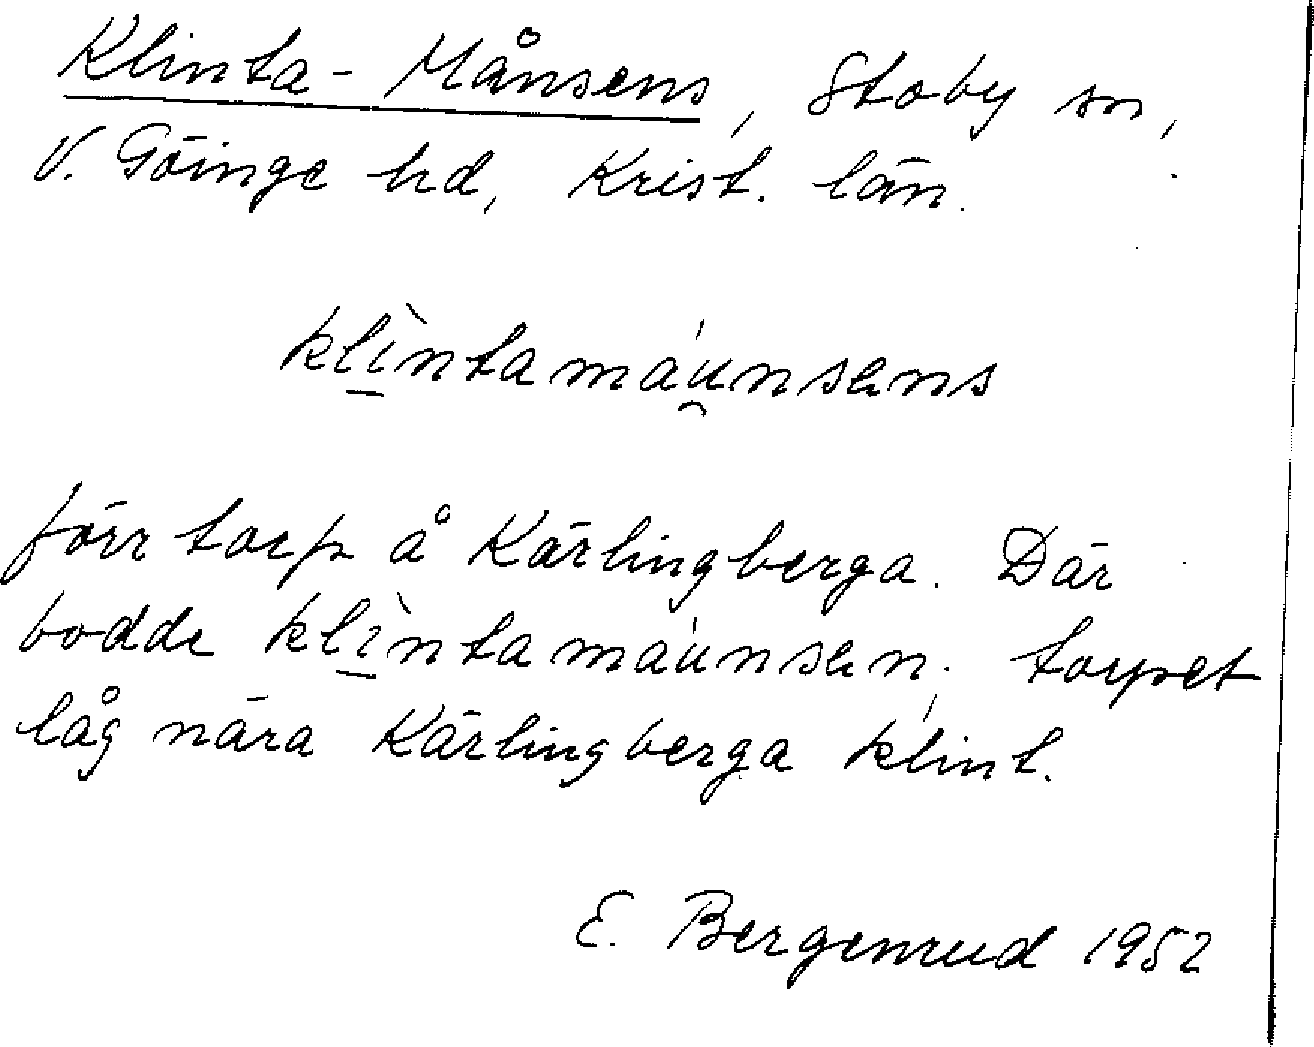 Klinta-Månsens, Stoby sn,
V. Göinge hd, Krist. län.
klìntamáu̯nsens
förr torp å Kärlingberga. Där
bodde klìntamáunsen; torpet
låg nära Kärlingberga klint.
E. Bergenrud 1952